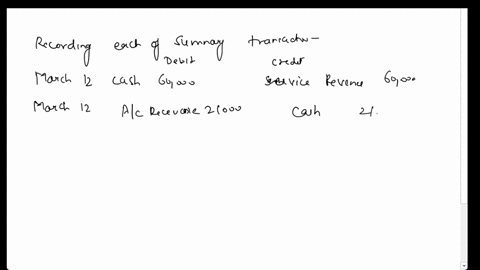 Recording each of Summary transactn-
Debit credit
March 12 Cash 60,000 Service Revenue 60,000
March 12 A/c Receivable 21000 Cash 21.